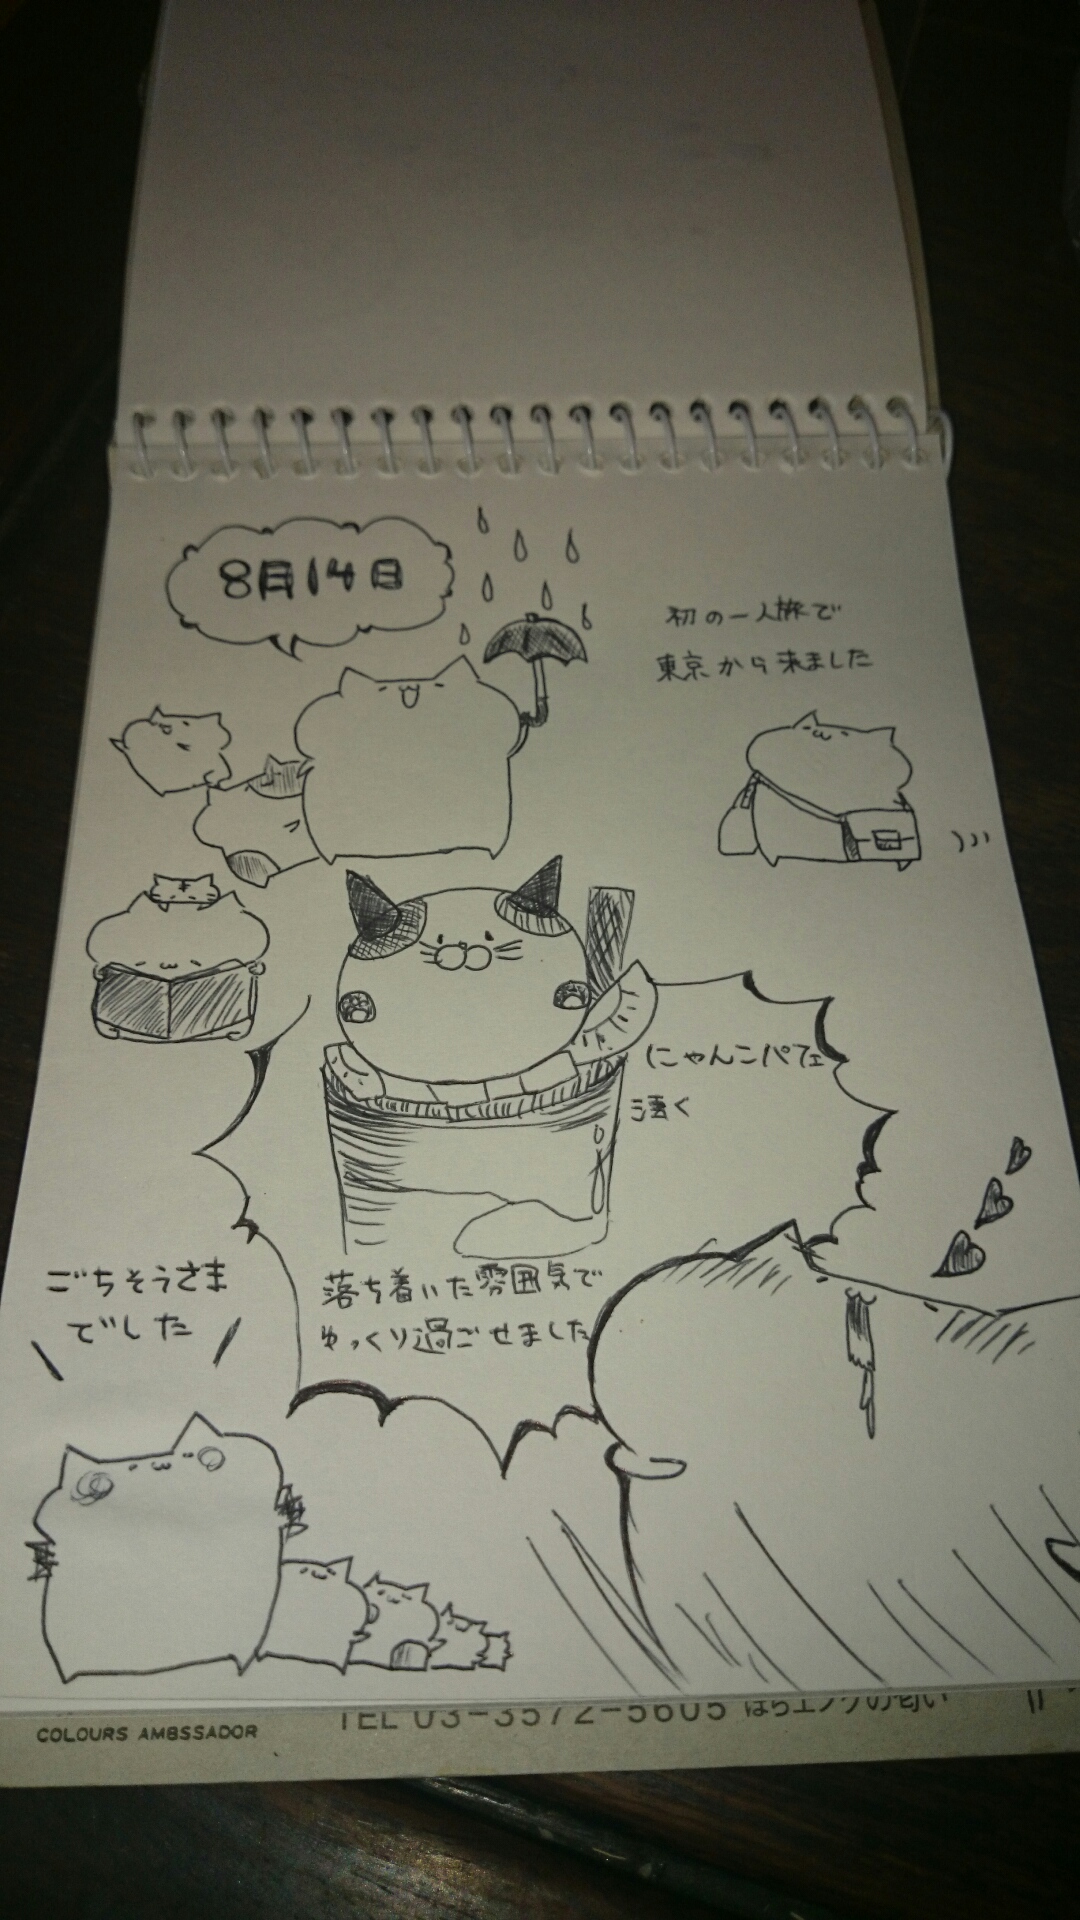 8月14日
初の一人旅で
東京から来ました
にゃんこパフェ
凄く
落ち着いた雰囲気で
ゆっくり過ごせました
ごちそうさま
でした
COLOURS AMBSSADOR
TEL 03-3572-5605